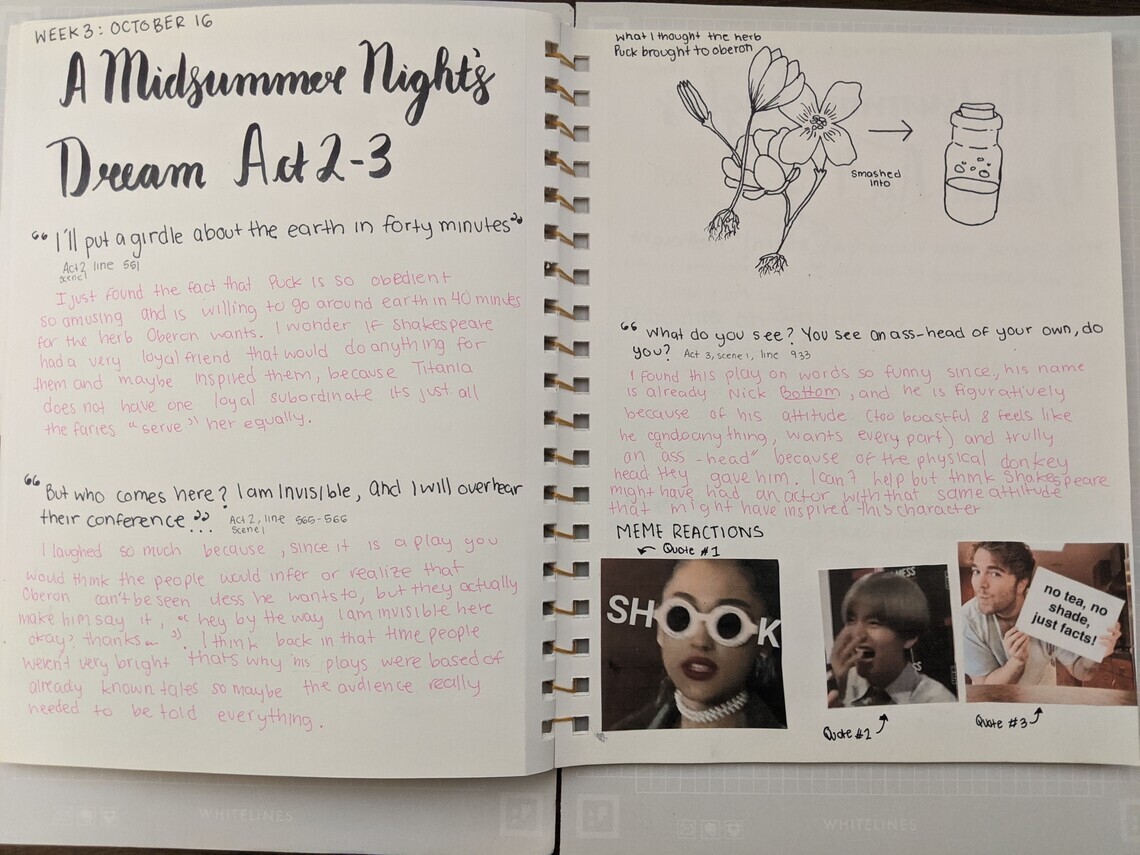 WEEK 3: OCTOBER 16
A Midsummer Night's
Dream Act 2-3
"I'll put a girdle about the earth in forty minutes"
Act 2, line 551
scene 1
I just found the fact that Puck is so obedient
so amusing and is willing to go around earth in 40 minutes
for the herb Oberon wants. I wonder if Shakespeare
had a very loyal friend that would do anything for
them and maybe inspired them, because Titania
does not have one loyal subordinate its just all
the faries "serve" her equally.
"But who comes here? I am invisible, and I will overhear
their conference..."
Act 2, line 565-566
scene 1
I laughed so much because, since it is a play you
would think the people would infer or realize that
Oberon can't be seen uless he wants to, but they actually
make him say it, "hey by the way I am invisible here
okay? thanks". I think back in that time people
weren't very bright thats why his plays were based of
already known tales so maybe the audience really
needed to be told everything.
What I thought the herb
Puck brought to oberon
smashed
into
"What do you see? You see an ass-head of your own, do
you? Act 3, scene 1, line 933
I found this play on words so funny since, his name
is already Nick Bottom, and he is figuratively
because of his attitude (too boastful & feels like
he can do anything, wants every part) and trully
an "ass-head" because of the physical donkey
head they gave him. I can't help but think Shakespeare
might have had an actor with that same attitude
that might have inspired this character
MEME REACTIONS
Quote #1
SHOOK
MESS
no tea, no
shade,
just facts!
Quote #2
Quote #3
WHITELINES
WHITELINES